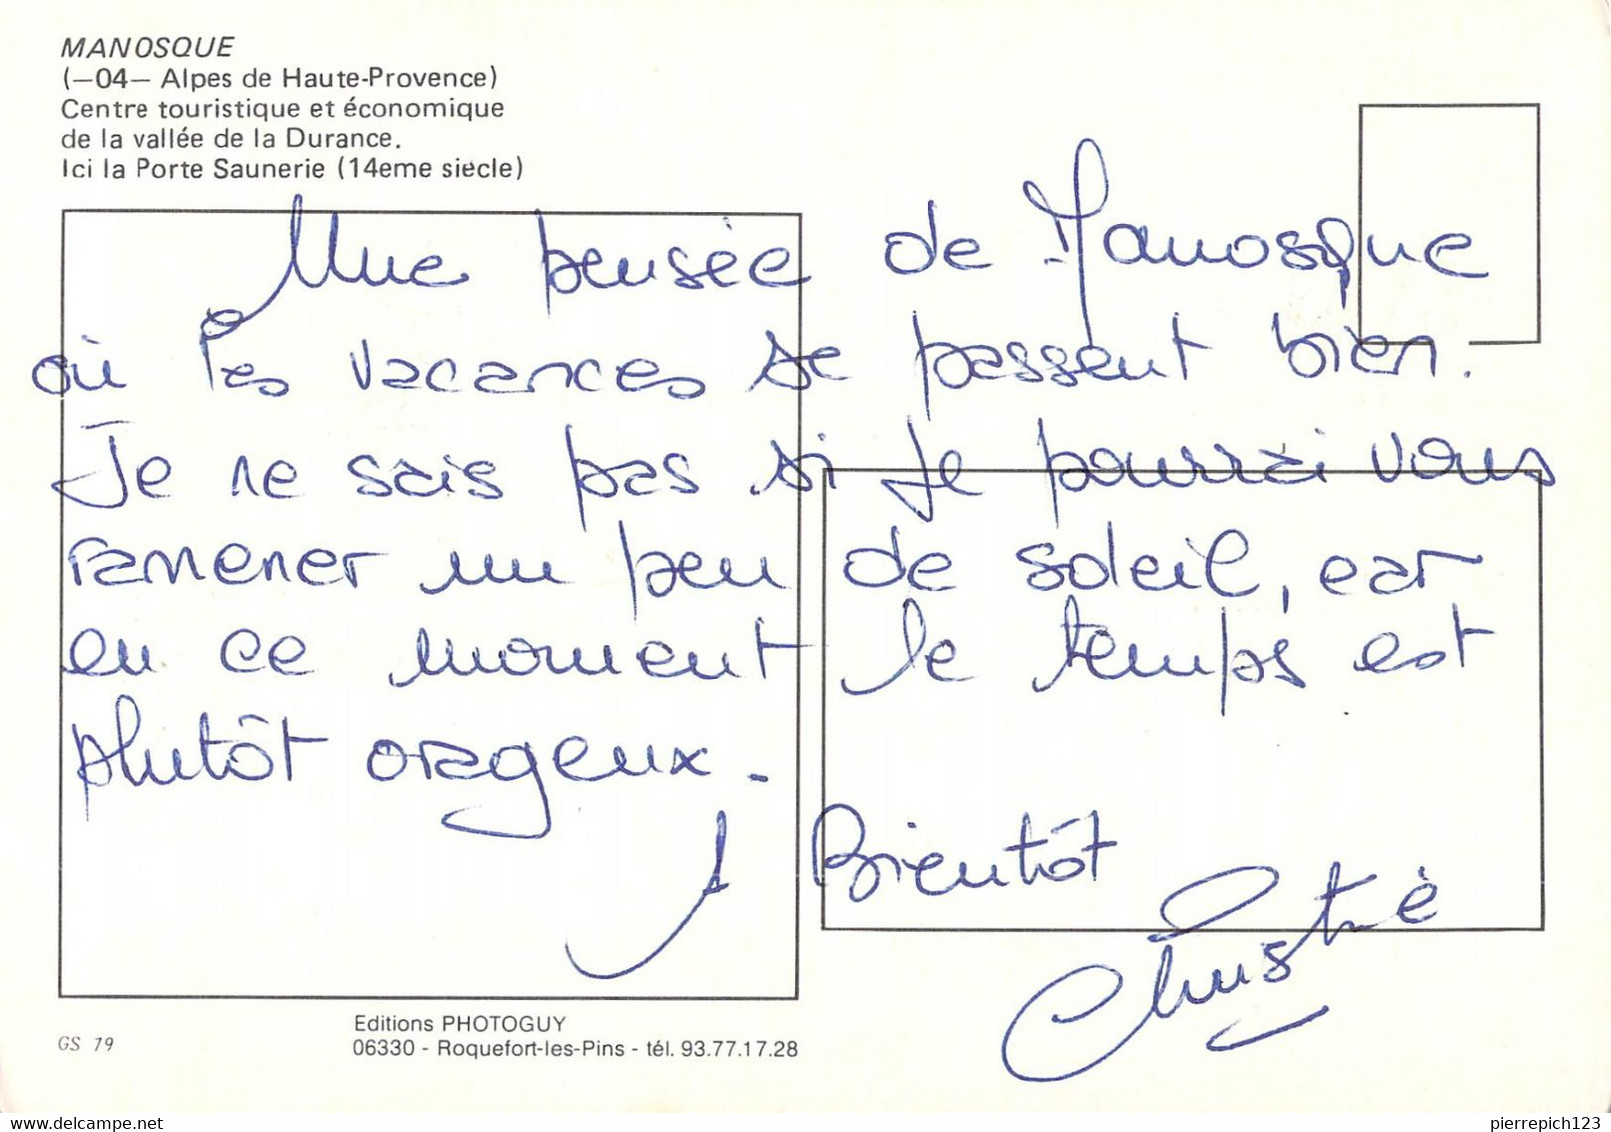 MANOSQUE
(—04— Alpes de Haute-Provence)
Centre touristique et économique
de la vallée de la Durance.
Ici la Porte Saunerie (14eme siècle)
Une pensée de Manosque
où les vacances se passent bien.
Je ne sais pas si je pourrai vous
ramener un peu de soleil, car
en ce moment le temps est
plutôt orageux.
A Bientôt
Editions PHOTOGUY
06330 - Roquefort-les-Pins - tél. 93.77.17.28
GS 79
delcampe.net
pierrepich123